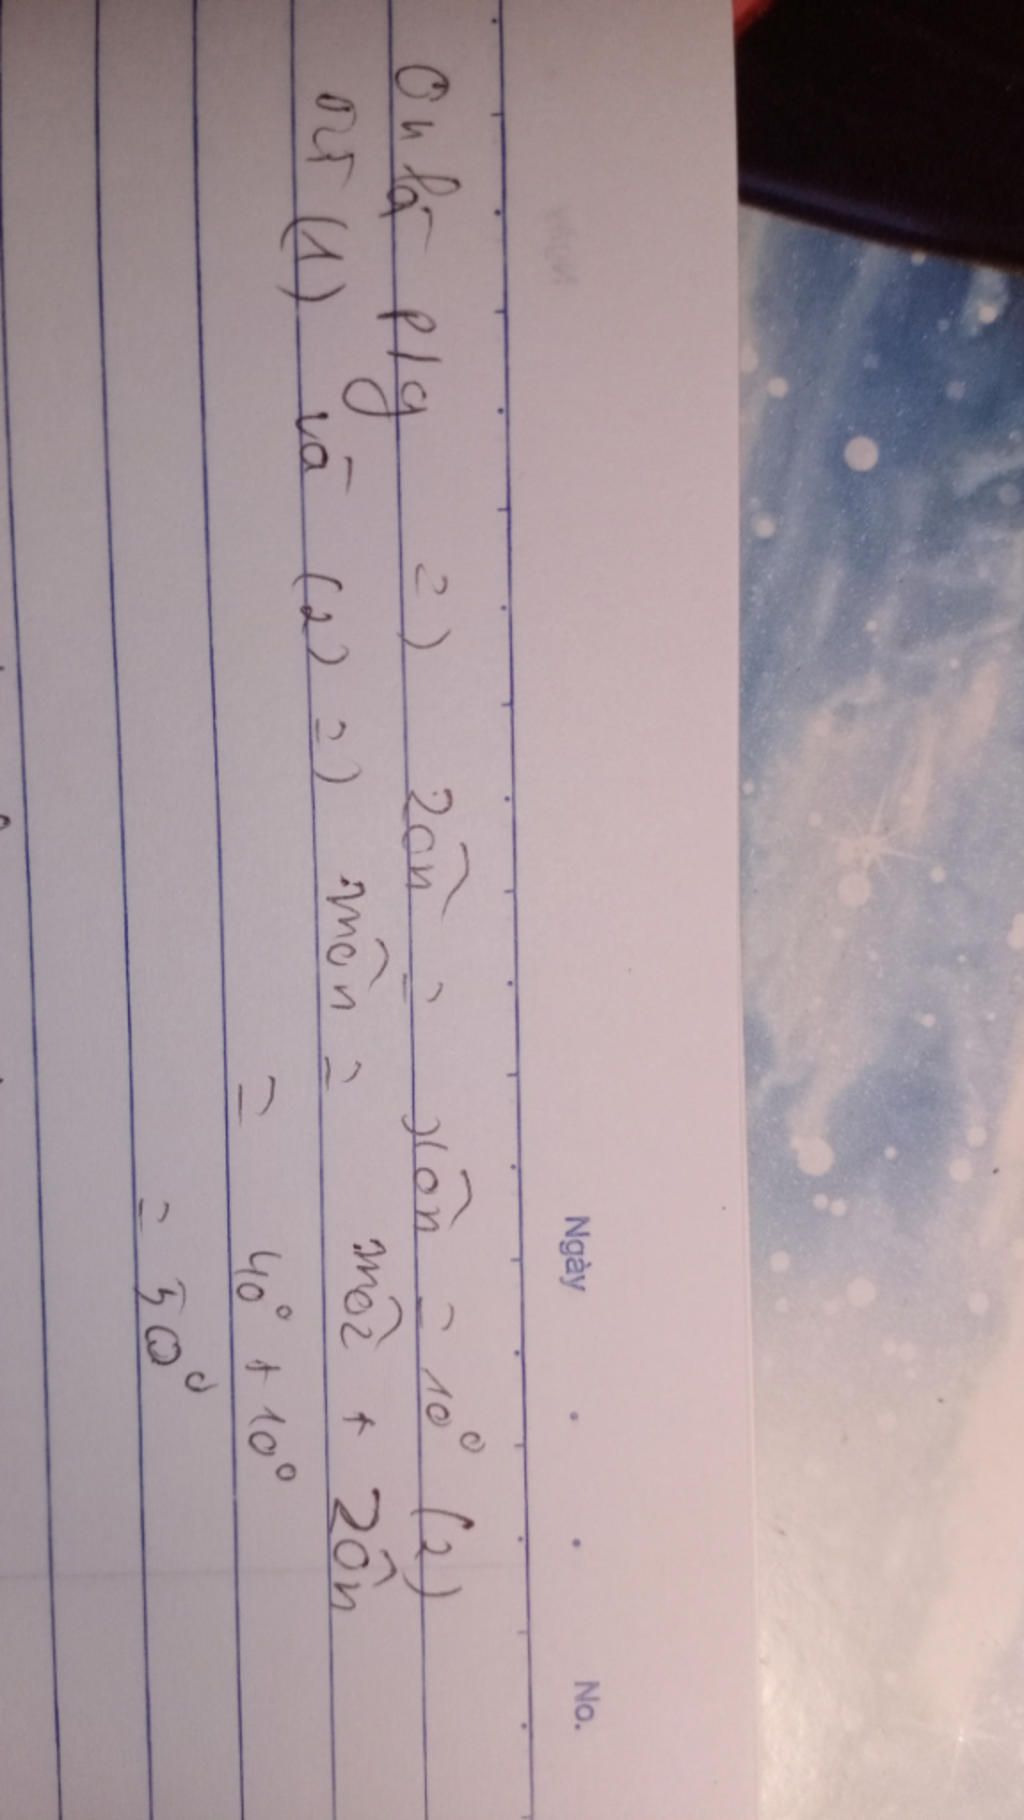 Ngày No.
On là p/g => zôn = xôn = 10° (2)
Từ (1) và (2) => môn = môz + zôn
= 40° + 10°
= 50°